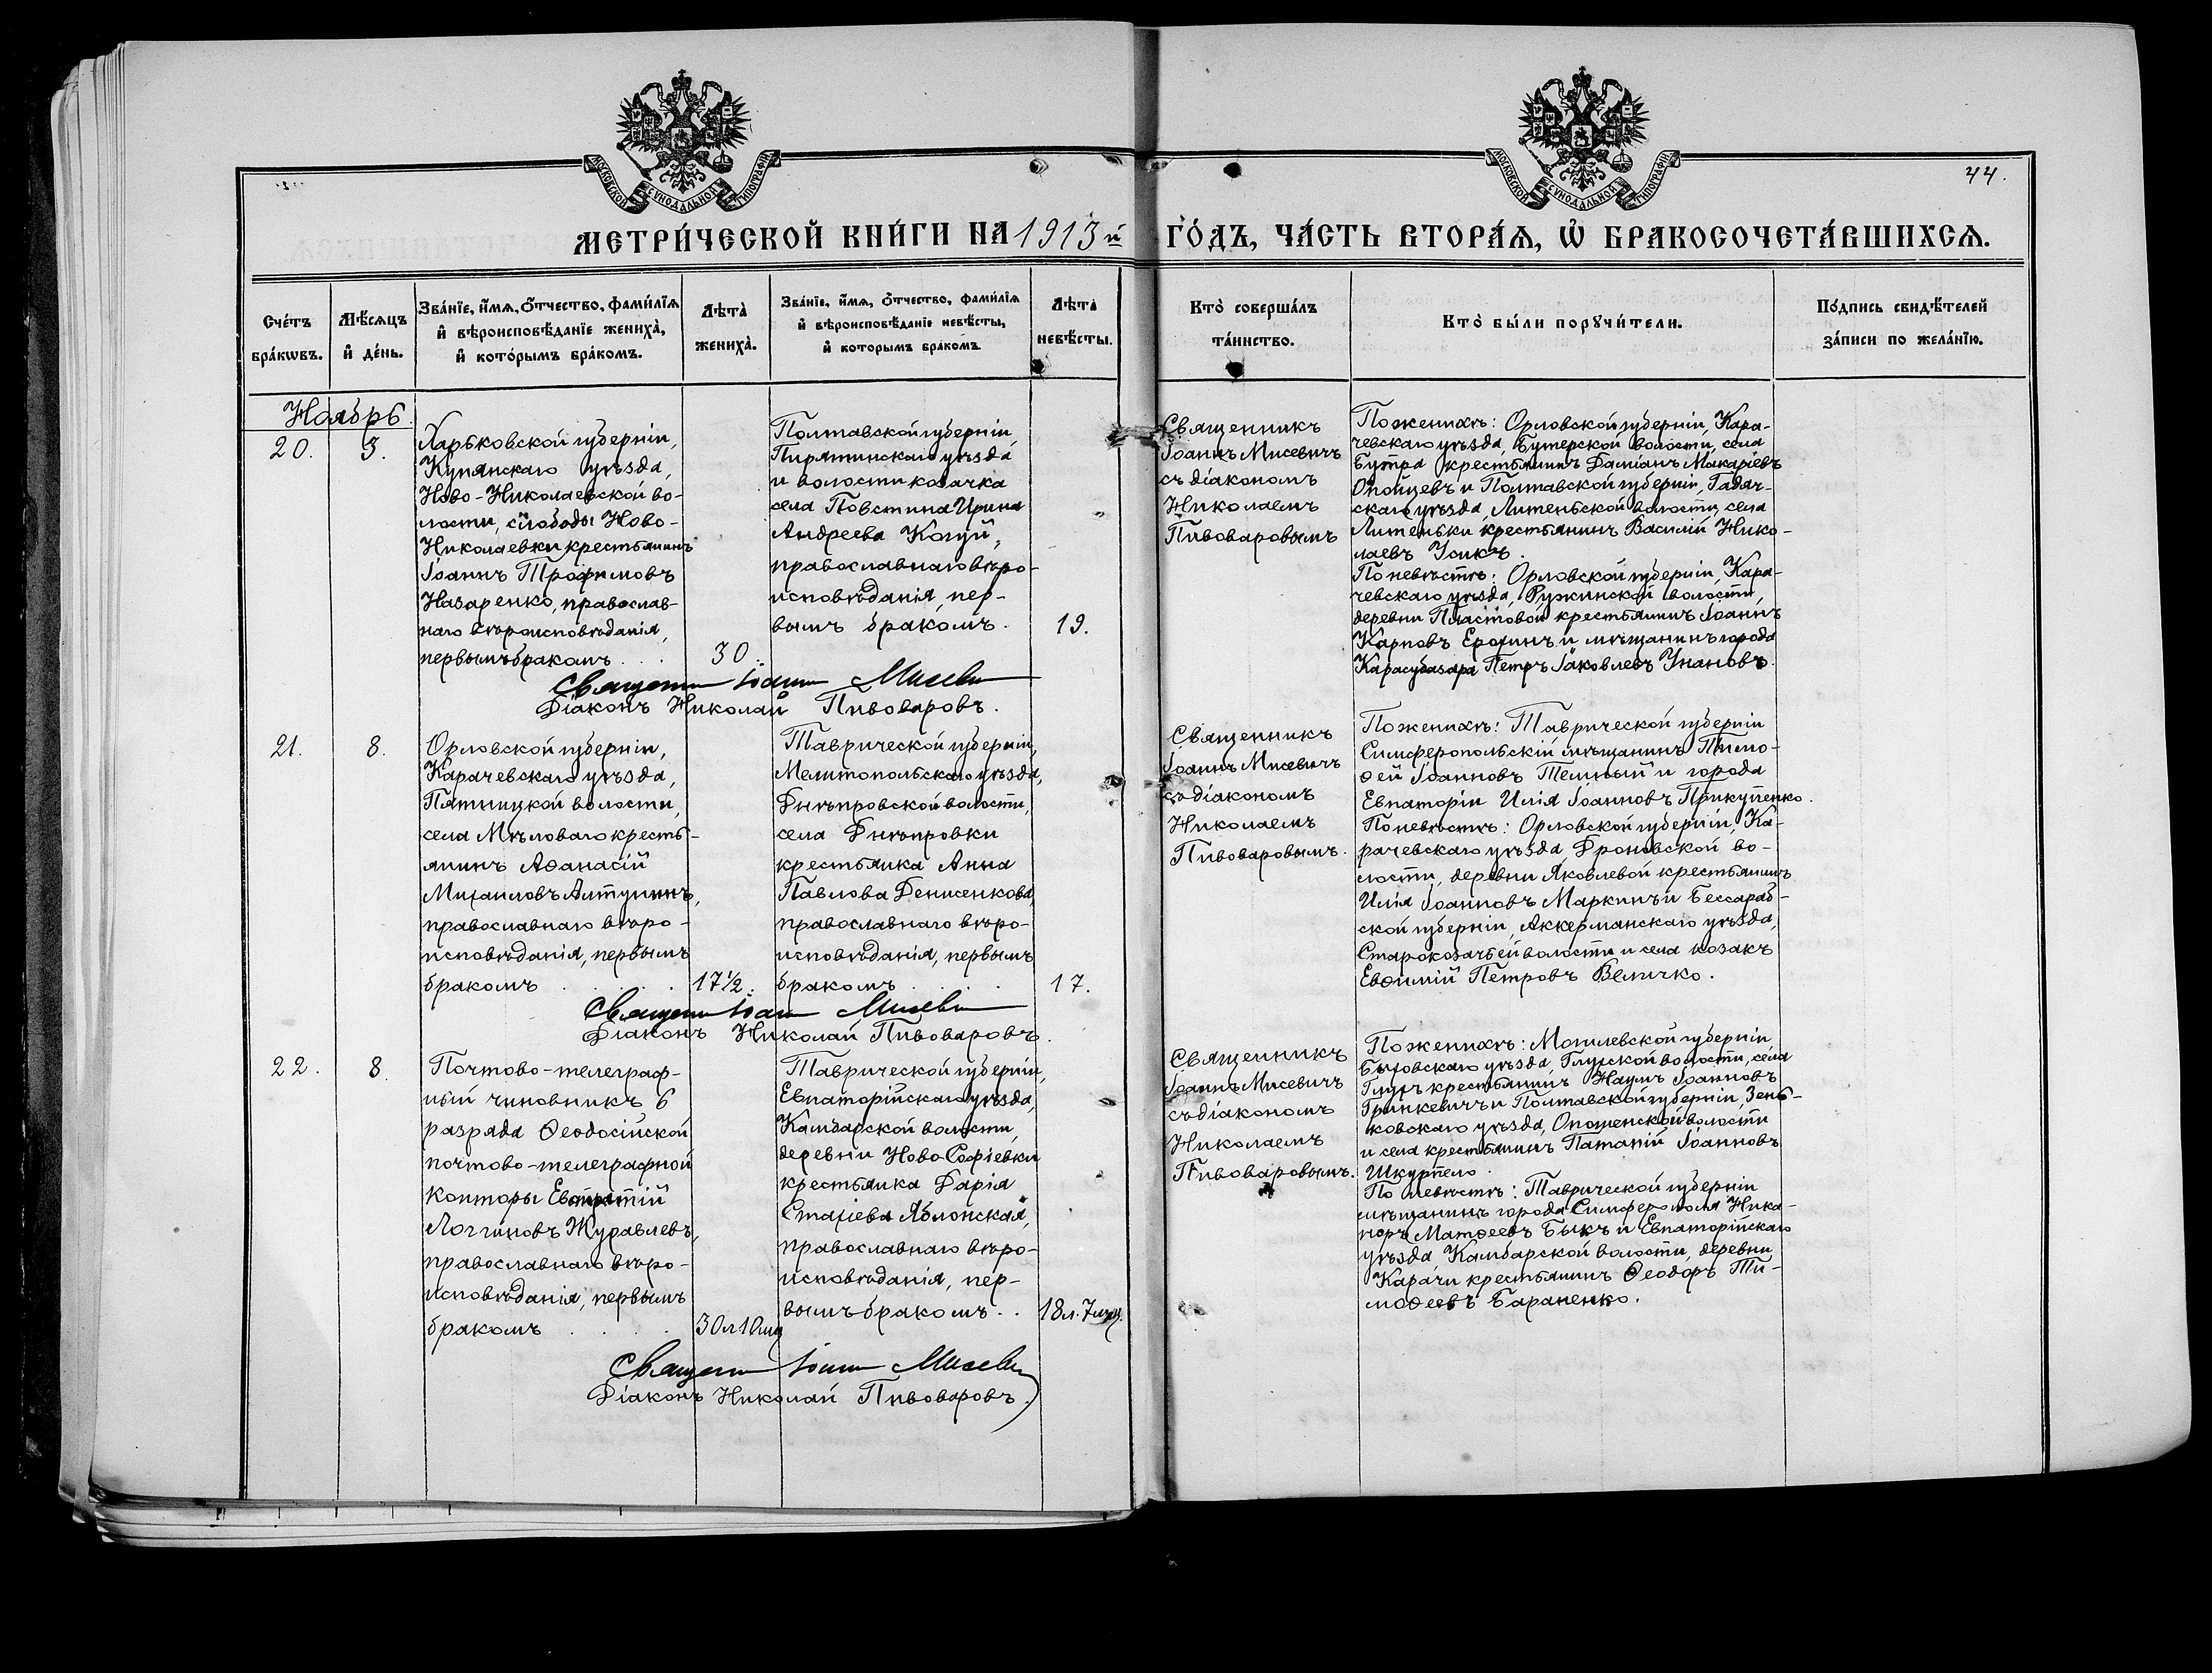 МОСКОВСКОЙ СУНОДАЛЬНОЙ ТИПОГРАФІИ
МОСКОВСКОЙ СУНОДАЛЬНОЙ ТИПОГРАФІИ
44.
МЕТРИ́ЧЕСКОЙ КНИ́ГИ НА 1913й ГО́ДЪ, ЧА́СТЬ ВТОРА́Я, Ѡ БРАКОСОЧЕТА́ВШИХСЯ.
Сче́тъ
бра́кѡвъ.
Мѣ́сяцъ
и де́нь.
Зва́нїе, и́мя, ѻ́тчество, фами́лїя
и вѣроисповѣ́данїе жениха̀,
и кото́рымъ бра́комъ.
Лѣта̀
жениха̀.
Зва́нїе, и́мя, ѻ́тчество, фами́лїя
и вѣроисповѣ́данїе невѣ́сты,
и которымъ бракомъ.
Лѣта̀
невѣ́сты.
Кто̀ соверша́лъ
та́инство.
Кто̀ бы́ли порꙋчи́тели.
По́дпись свидѣ́телей
за́писи по жела́нїю.
Ноябрь.
20.
3.
Харьковской губерніи,
Купянскаго уѣзда,
Ново-Николаевской во-
лости, слободы Ново-
Николаевки крестьянинъ
Іоаннъ Трофимовъ
Назаренко, православ-
наго вѣроисповѣданія,
первымъ бракомъ . . .
30.
Полтавской губерніи
Пирятинскаго уѣзда
и волости козачка
села Повстина Ирина
Андреева Когуй,
православнаго вѣро-
исповѣданія, пер-
вымъ бракомъ.
19.
Священникъ
Іоаннъ Мисевичъ
съ діакономъ
Николаемъ
Пивоваровымъ
По женихѣ: Орловской губерніи, Кара-
чевскаго уѣзда, Бутерской волости, села
Бутра крестьянинъ Даміанъ Макаріевъ
Опойцевъ и Полтавской губерніи, Гадяч-
скаго уѣзда, Лютеньской волости, села
Лютеньки крестьянинъ Василій Нико-
лаевъ Усикъ.
По невѣстѣ: Орловской губерніи, Кара-
чевскаго уѣзда, Ружинской волости,
деревни Пластовой крестьянинъ Іоаннъ
Карповъ Ерохинъ и мѣщанинъ города
Карасубазара Петръ Іаковлевъ Унановъ.
Священникъ Іоаннъ Мисевичъ
Діаконъ Николай Пивоваровъ.
21.
8.
Орловской губерніи,
Карачевскаго уѣзда,
Пятницкой волости,
села Мѣловаго кресть-
янинъ Аѳанасій
Михаиловъ Алтунинъ,
православнаго вѣро-
исповѣданія, первымъ
бракомъ . . . .
17½.
Таврической губерніи,
Мелитопольскаго уѣзда,
Днѣпровской волости,
села Днѣпровки
крестьянка Анна
Павлова Денисенкова,
православнаго вѣро-
исповѣданія, первымъ
бракомъ . . . .
17.
Священникъ
Іоаннъ Мисевичъ
съ діакономъ
Николаемъ
Пивоваровымъ.
По женихѣ: Таврической губерніи
Симферопольскій мѣщанинъ Тимо-
ѳей Іоанновъ Темный и города
Евпаторіи Илія Іоанновъ Прикупенко.
По невѣстѣ: Орловской губерніи, Ка-
рачевскаго уѣзда Дроновской во-
лости, деревни Яковлевой крестьянинъ
Илія Іоанновъ Маркинъ и Бессараб-
ской губерніи, Аккерманскаго уѣзда,
Староказачьей волости и села козакъ
Евѳимій Петровъ Величко.
Священникъ Іоаннъ Мисевичъ
Діаконъ Николай Пивоваровъ.
22.
8.
Почтово-телеграф-
ный чиновникъ 6
разряда Ѳеодосійской
почтово-телеграфной
конторы Евстратій
Логгиновъ Журавлевъ,
православнаго вѣро-
исповѣданія, первымъ
бракомъ . . . .
30 л 10 мц
Таврической губерніи,
Евпаторійскаго уѣзда,
Камбарской волости,
деревни Ново Софіевки
крестьянка Дарія
Стахіева Яблонская,
православнаго вѣро-
исповѣданія, пер-
вымъ бракомъ . .
18 л. 7 мц.
Священникъ
Іоаннъ Мисевичъ
съ діакономъ
Николаемъ
Пивоваровымъ.
По женихѣ: Могилевской губерніи
Быховскаго уѣзда, Глухской волости, села
Глухъ крестьянинъ Наумъ Іоанновъ
Гринкевичъ и Полтавской губерніи, Зень-
ковскаго уѣзда, Опошенской волости
и села крестьянинъ Патапій Іоанновъ
Шкурпело.
По невѣстѣ: Таврической губерніи
мѣщанинъ города Симферополя Ника-
норъ Матѳеевъ Быкъ и Евпаторійскаго
уѣзда, Камбарской волости, деревни
Карачи крестьянинъ Ѳеодоръ Ти-
моѳеевъ Бараненко.
Священникъ Іоаннъ Мисевичъ
Діаконъ Николай Пивоваровъ.